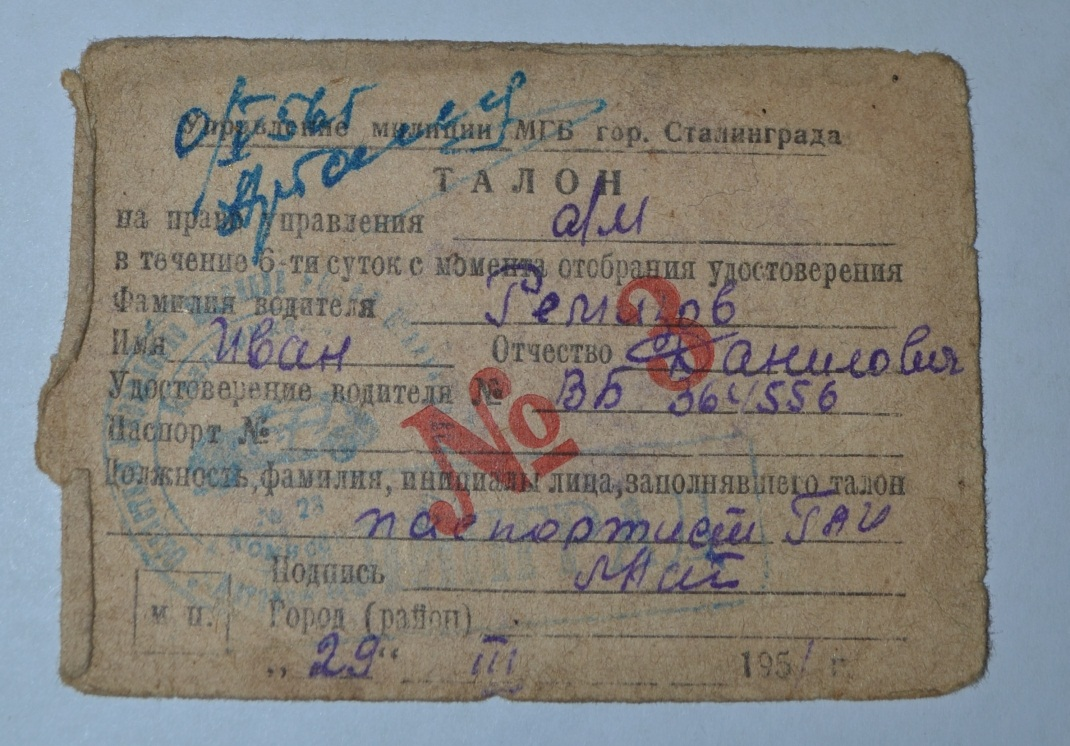 Управление милиции МГБ гор. Сталинграда
ТАЛОН
на право управления а/м
в течение 6-ти суток с момента отобрания удостоверения
Фамилия водителя
Имя Иван Отчество Данилович
№ 3
Удостоверение водителя № ВБ 364556
Паспорт №
Должность, фамилия, инициалы лица, заполнявшего талон
паспортист ГАИ
Подпись
м п. Город (район)
„ 29 “ III 1951 г.